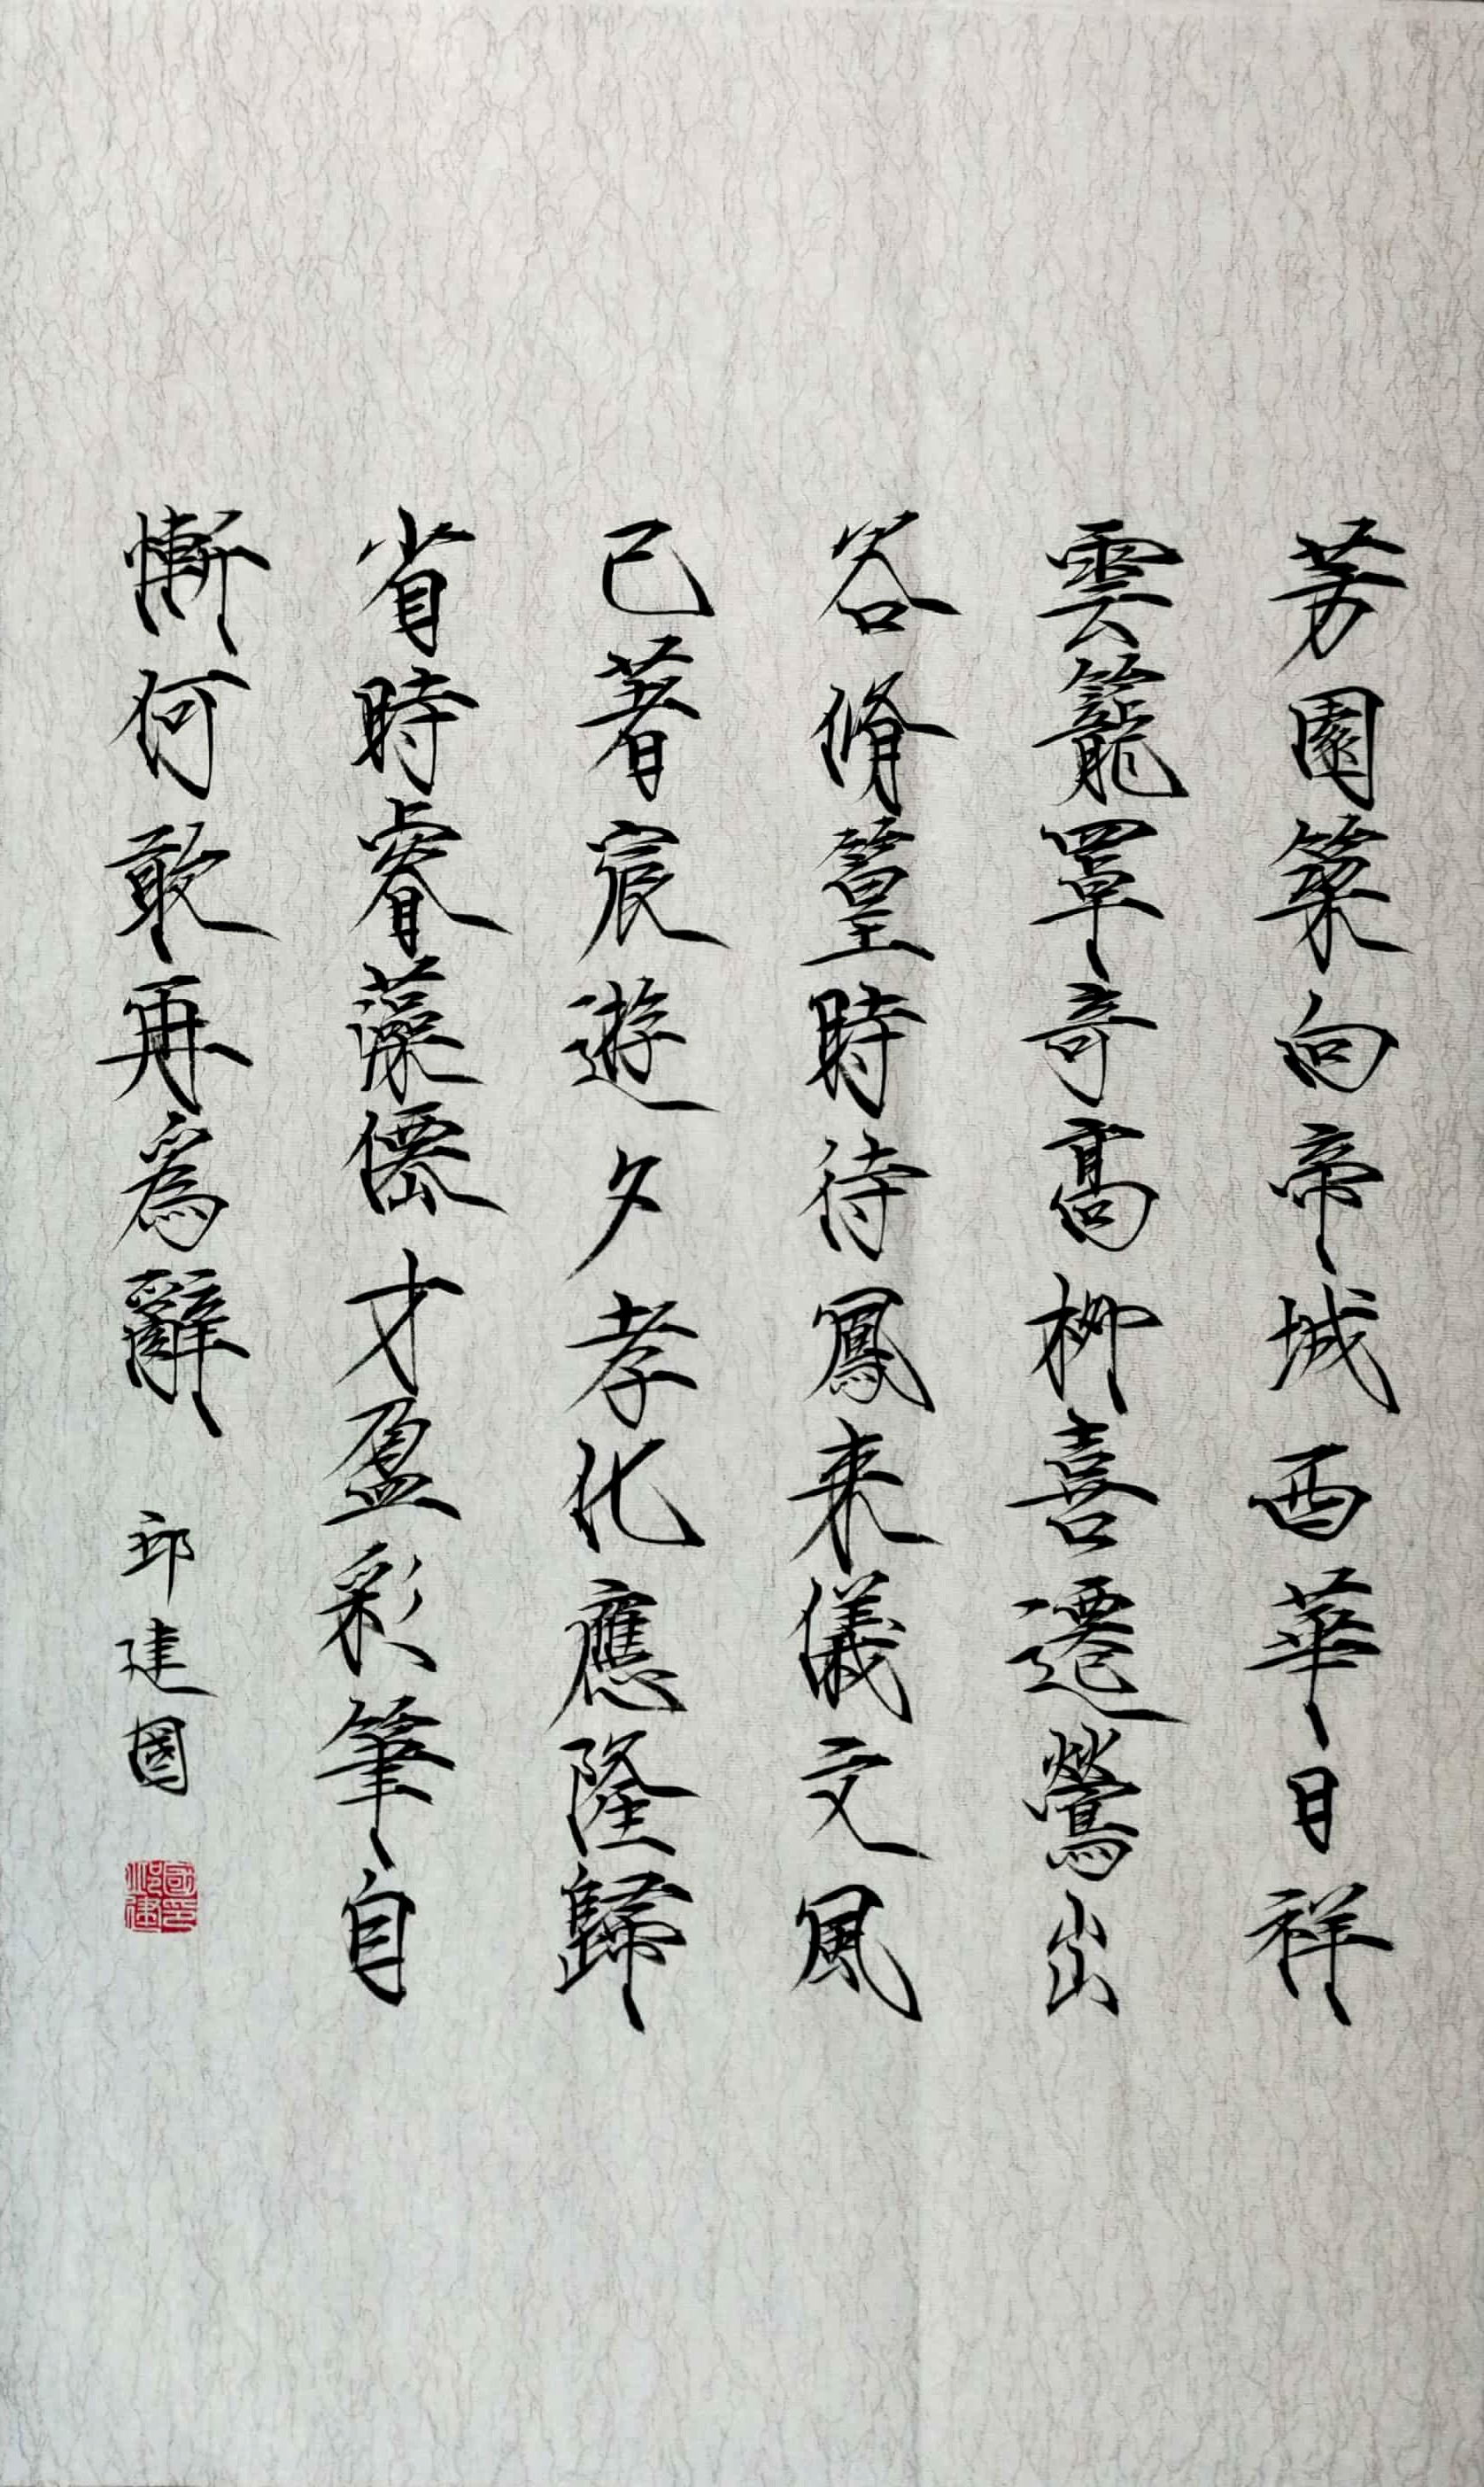 芳園築向帝城西華日祥
雲籠罩奇高柳喜遷鶯出
谷脩篁時待鳳来儀文風
已著宸遊夕孝化應隆歸
省時睿藻僊才盈彩筆自
慚何敢再為辭
邱建國